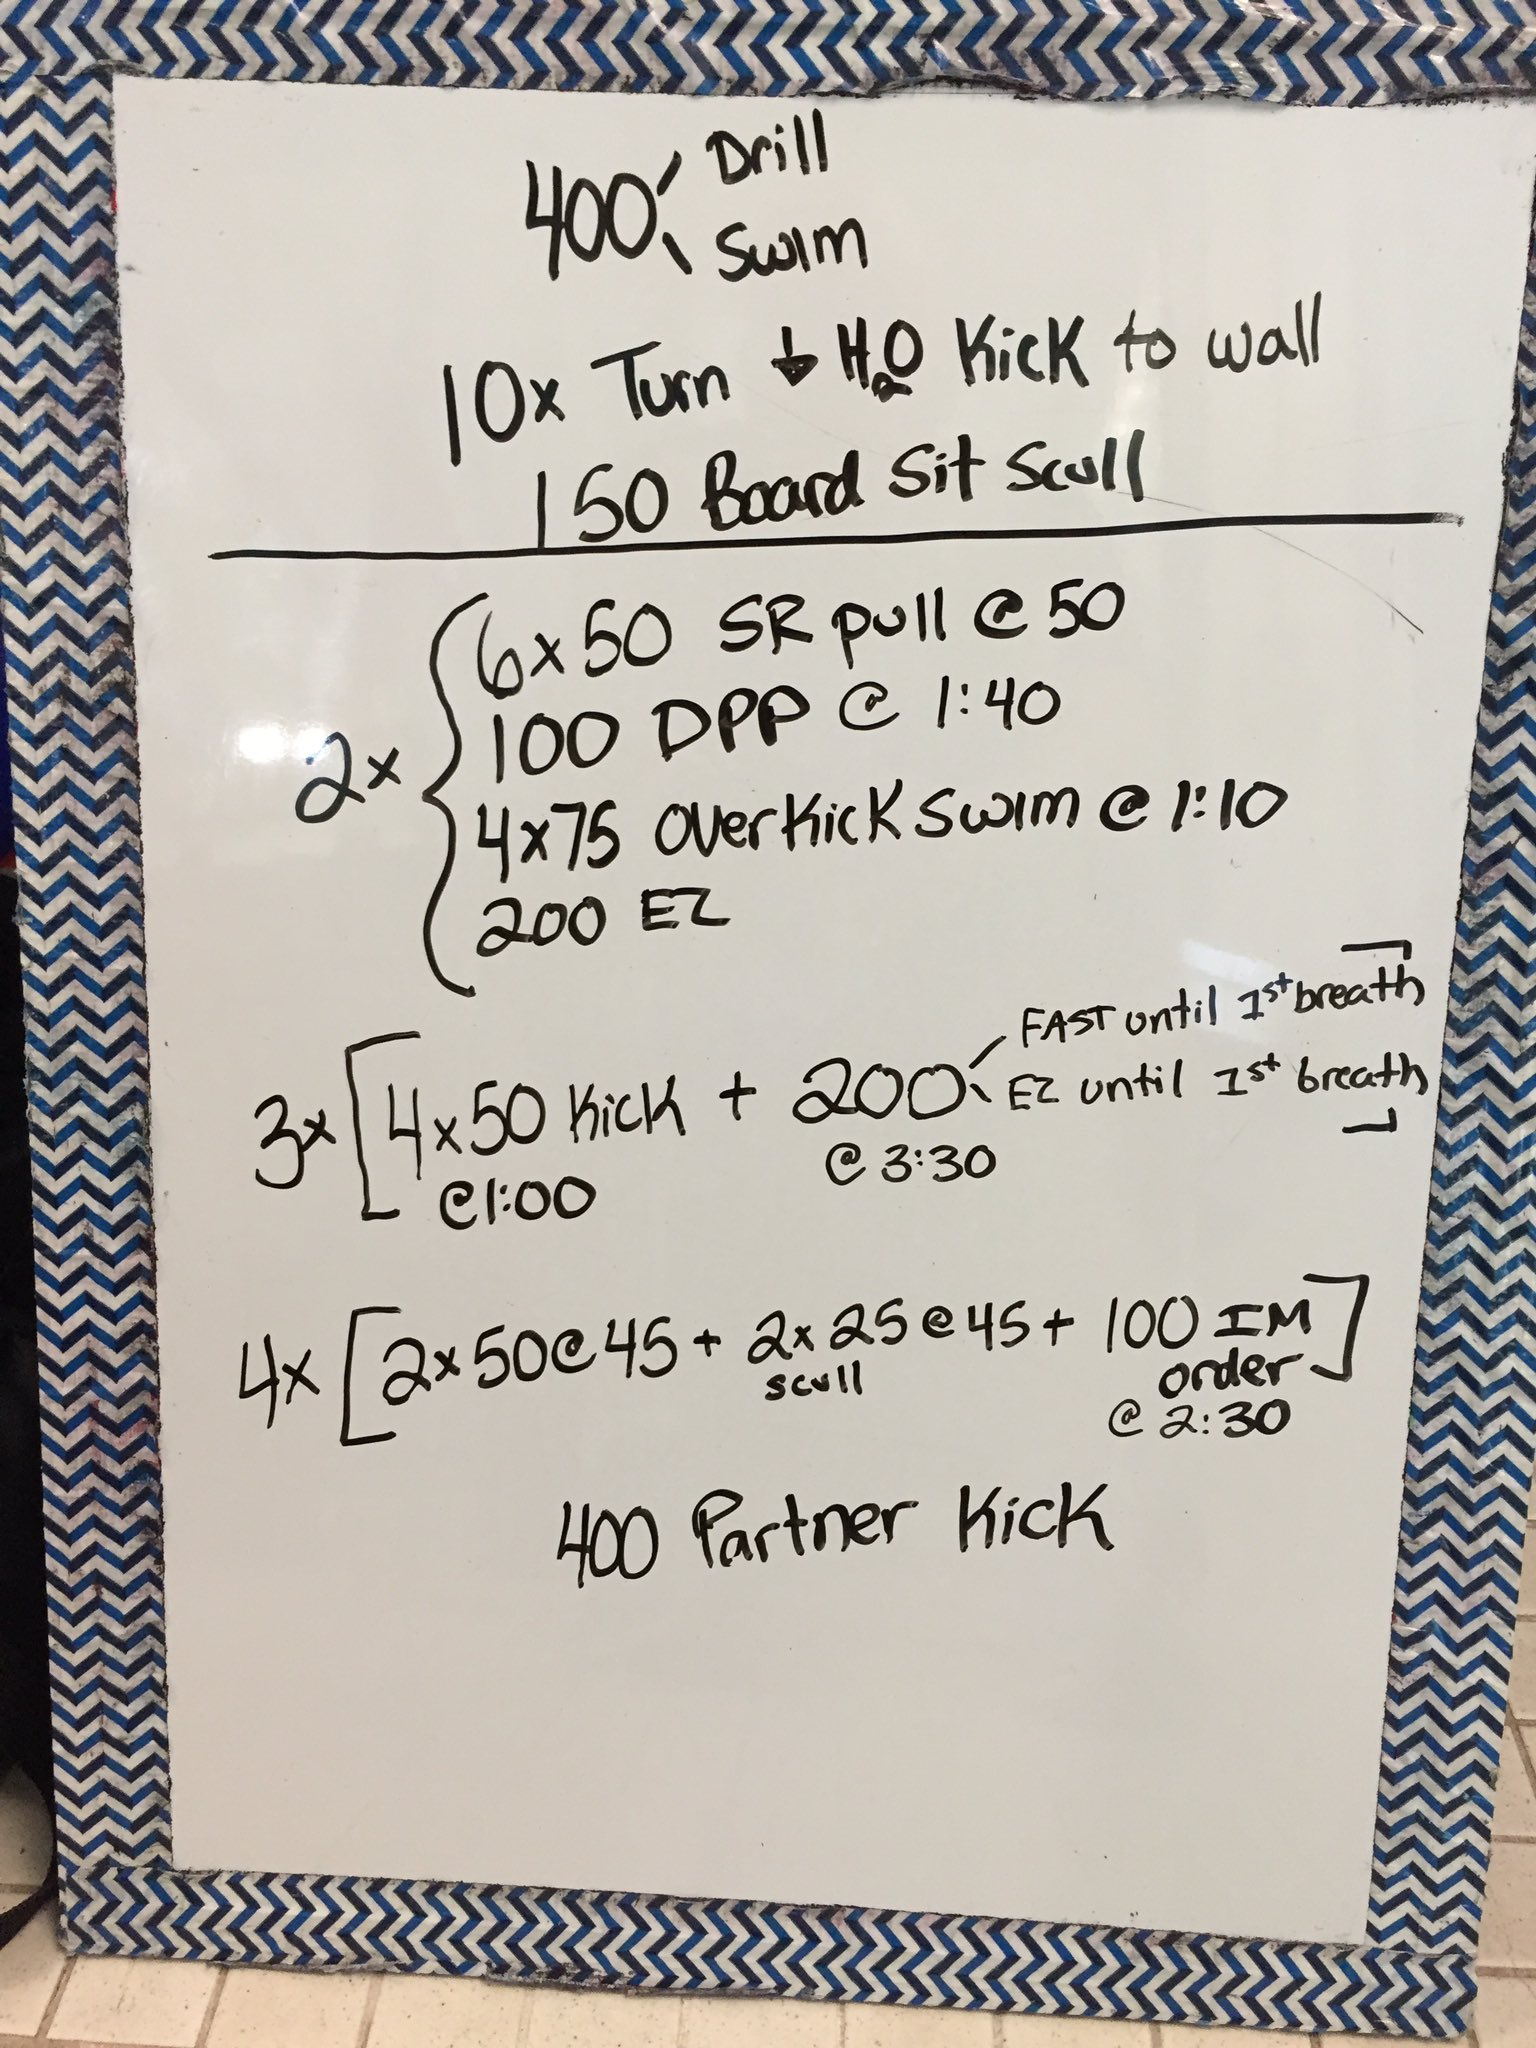 400 Drill
Swim
10x Turn ↓ H₂O Kick to wall
150 Board Sit Scull
2x { 6x50 SR pull @ 50
100 DPP @ 1:40
4x75 Overkick Swim @ 1:10
200 EZ
3x [4x50 Kick + 200 FAST until 1st breath
EZ until 1st breath]
@1:00 @ 3:30
4x [2x50@45 + 2x25@45 + 100 IM
scull order]
@ 2:30
400 Partner Kick